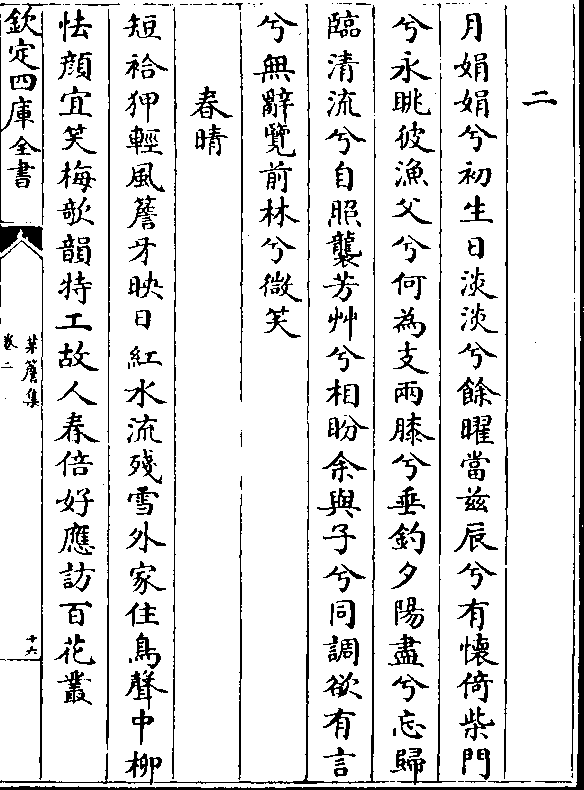 二
月娟娟兮初生日淡淡兮餘曜當兹辰兮有懷倚柴門
兮永眺彼漁父兮何為支兩膝兮垂釣夕陽盡兮忘歸
臨清流兮自照襲芳艸兮相盼余與子兮同調欲有言
兮無辭覽前林兮微笑
春晴
短袷狎輕風簷牙映日紅水流殘雪外家住鳥聲中柳
怯顔宜笑梅欹韻特工故人春倍好應訪百花叢
欽定四庫全書
葉簷集
卷二
十六